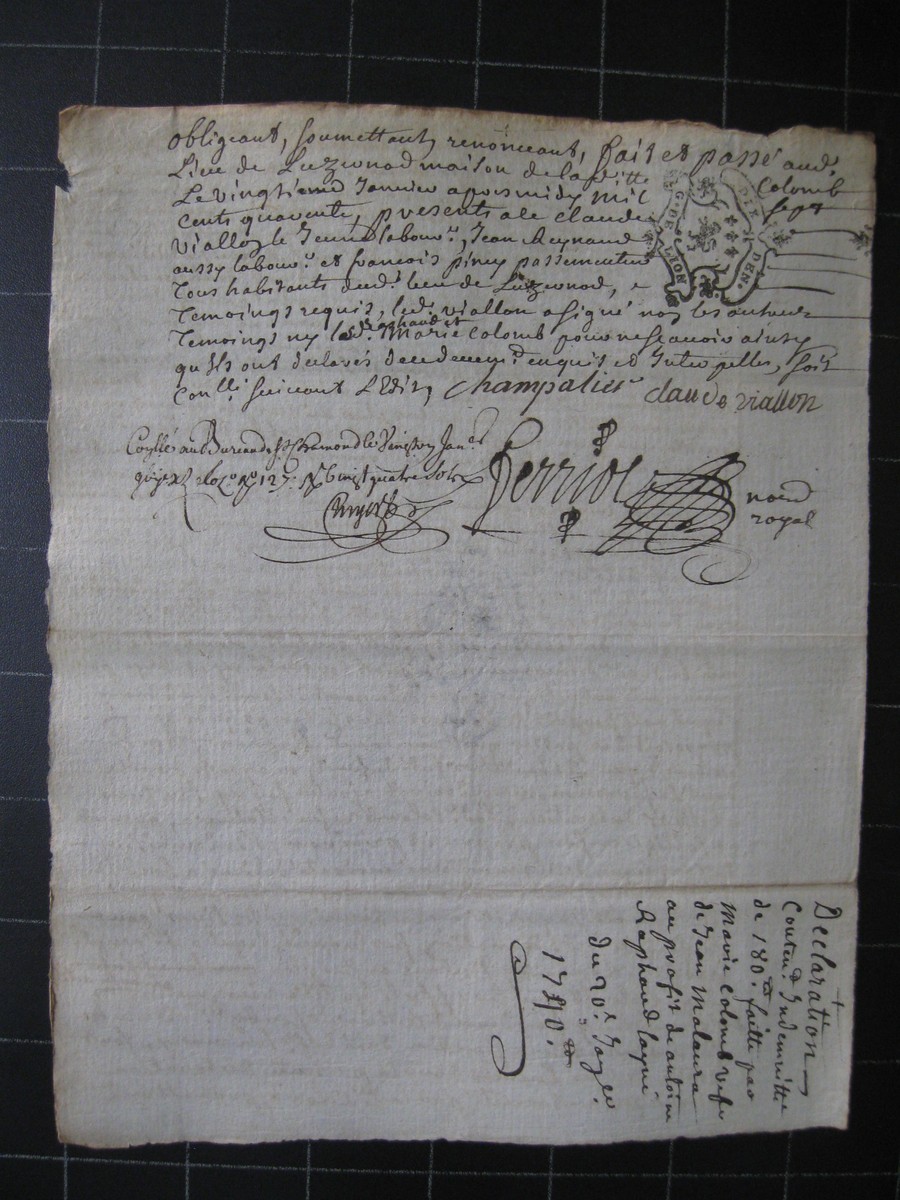 obligeant, soumettant, renonceant, fait et passé aud.
Lieu de Luzernod maison de laditte Colomb
Le vingtieme Janvier apres midy mil sept
cents quarente, presents a ce Claude
viallon le Jeune labour.r, Jean Reynaud
aussy labour.r et francois piney passementier
Tous habitants dud. lieu de Luzernod,
Temoings requis, led. viallon a signé non les autres
Temoings ny led. Raphaud et Marie Colomb pour ne scavoir ainsy
qu'Ils ont declarés de ce deuem.t enquis et Interpelles, soit
Con.llé suivant L'Edit, Champalier claude viallon
Con.llé au Bureau de S.t Chamond le
R. vingt quatre sols
ferriol
no.re
royal
G. DE LION
DIX DEN.
Declaration
conten.t Indemnitte
de 180.tt faitte par
Marie Colomb vefve
de Jean Malaura
au profit de antoine
Raphaud layné
du 20.e Janvier
1740.